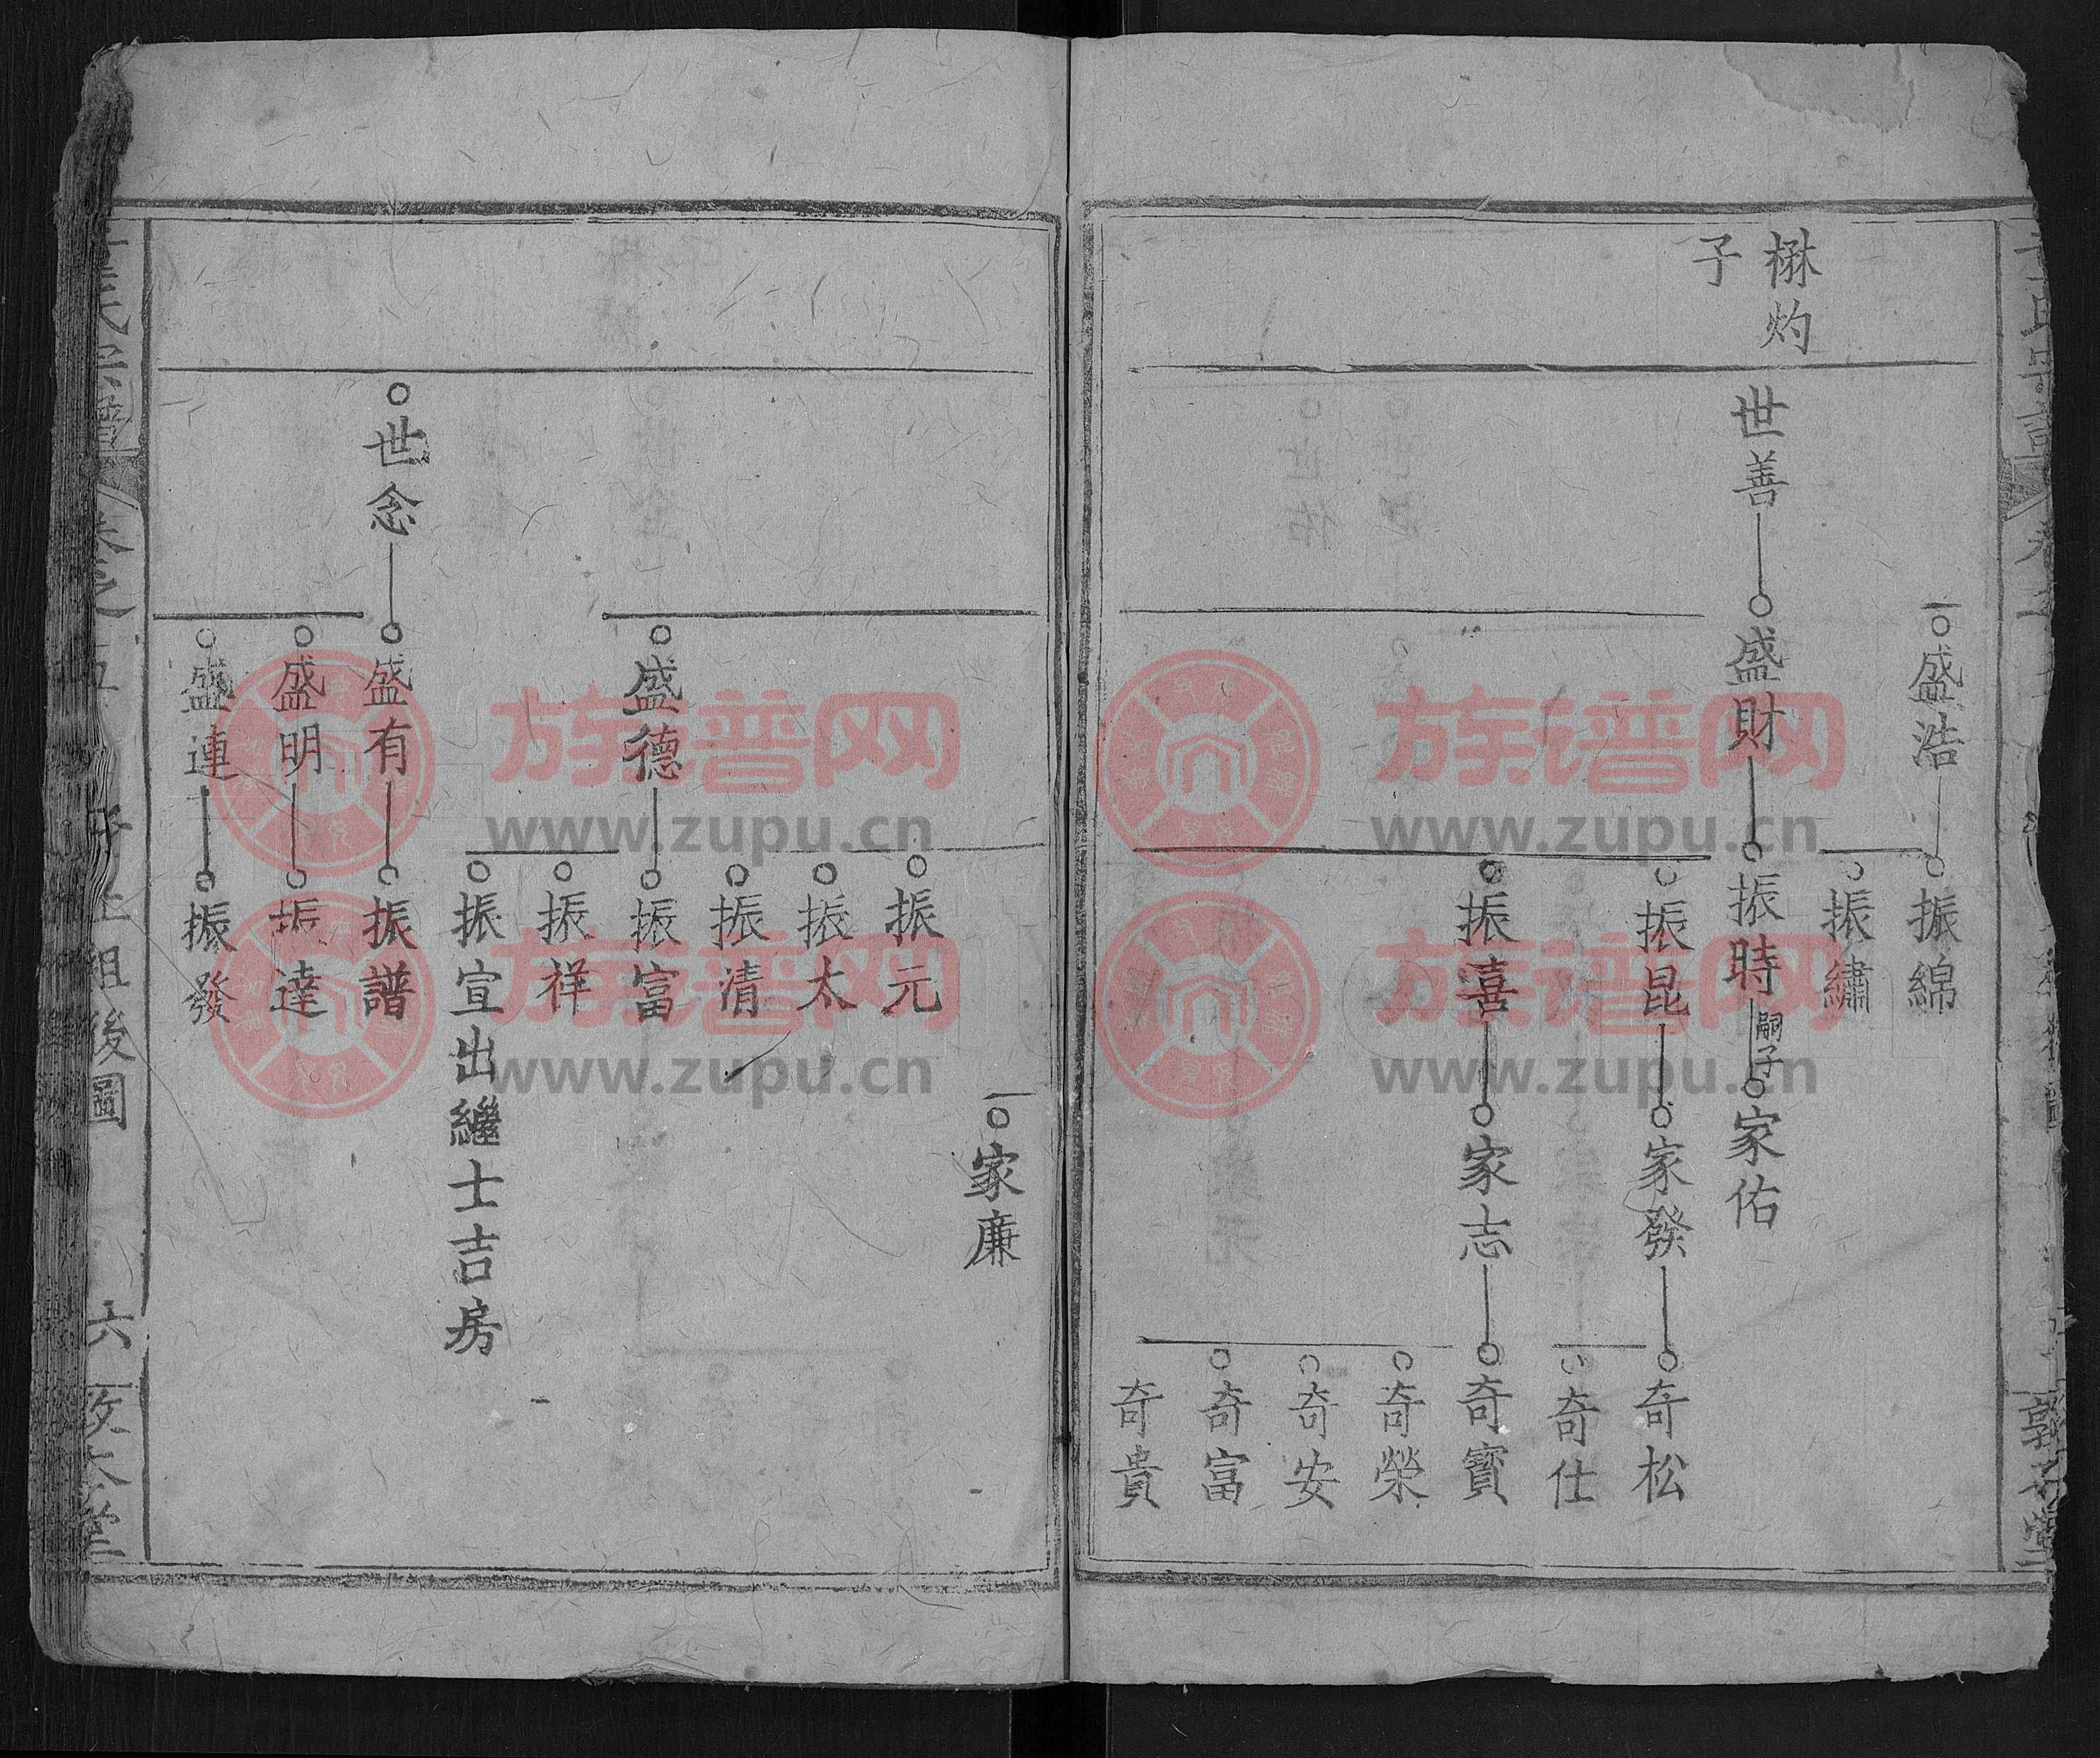 盛浩
振綿
振繡
楙灼
子
世善
盛財
振時
嗣子
家佑
振昆
家發
奇松
奇仕
振喜
家志
奇寶
奇榮
奇安
奇富
奇貴
家廉
振元
振太
振清
盛德
振富
振祥
振宣出繼士吉房
世念
盛有
振譜
盛明
振達
盛連
振發
後圖
六
族谱网
www.zupu.cn
族谱网
www.zupu.cn
族谱网
www.zupu.cn
族谱网
www.zupu.cn